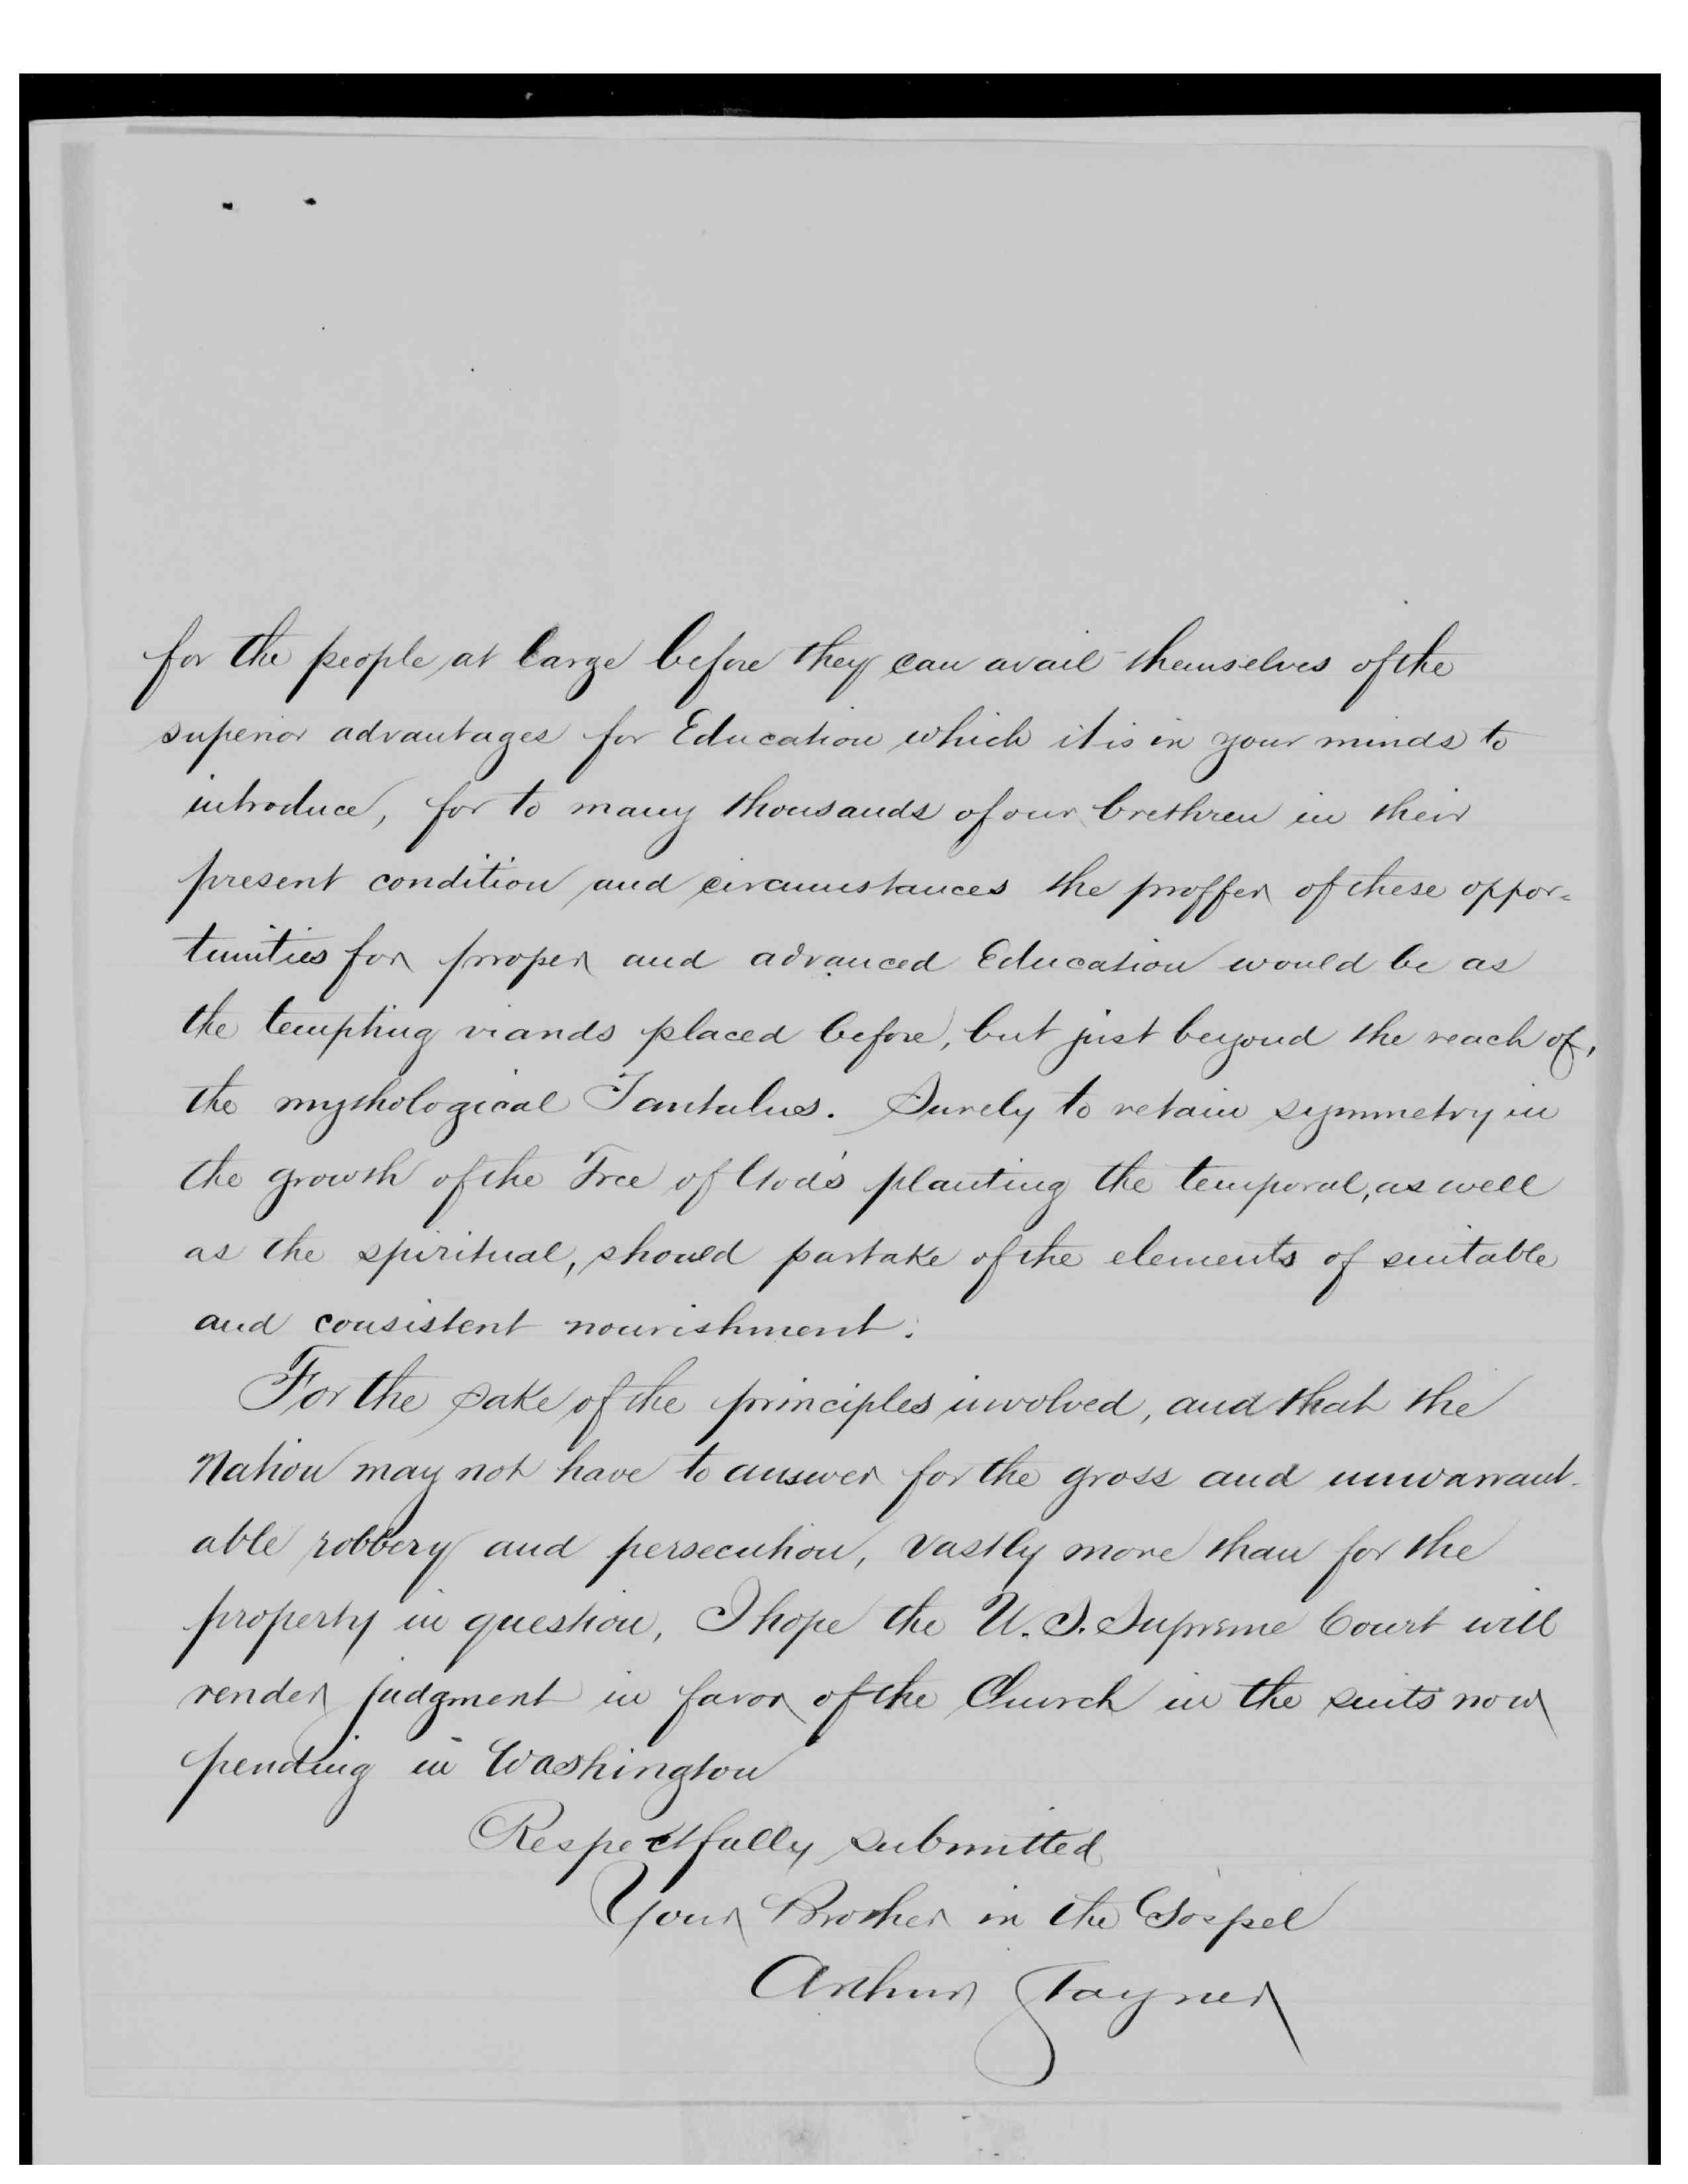 for the people at large before they can avail themselves of the
superior advantages for Education which it is in your minds to
introduce, for to many thousands of our brethren in their
present condition and circumstances the proffer of these oppor=
tunities for proper and advanced Education would be as
the tempting viands placed before, but just beyond the reach of,
the mythological Tantulus. Surely to retain symmetry in
the growth of the Tree of God's planting the temporal, as well
as the spiritual, should partake of the elements of suitable
and consistent nourishment.
For the sake of the principles involved, and that the
Nation may not have to answer for the gross and unwarrant-
able robbery and persecution, vastly more than for the
property in question, I hope the U.S. Supreme Court will
render judgment in favor of the Church in the suits now
pending in Washington
Respectfully submitted
Your Brother in the Gospel
Arthur Stayner